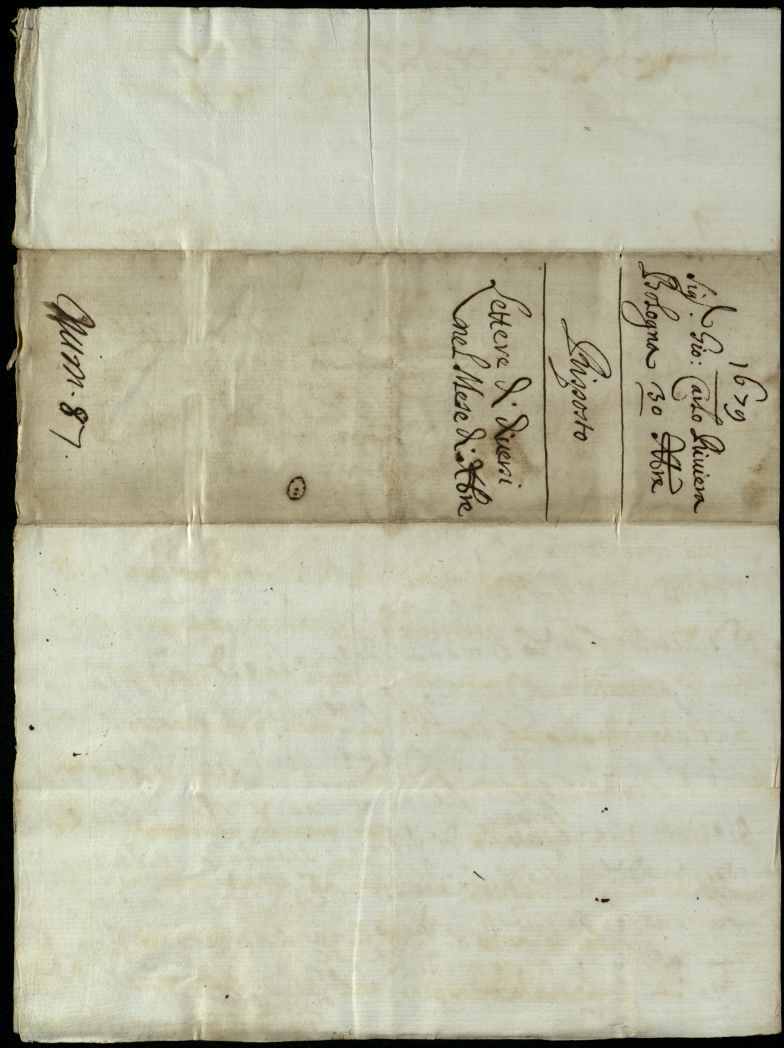 1679
Sig.r Gio: Carlo Riviera
Bologna 30 Xbre
Risposto
Lettere di diversi
nel Mese di Xbre
Num. 87.